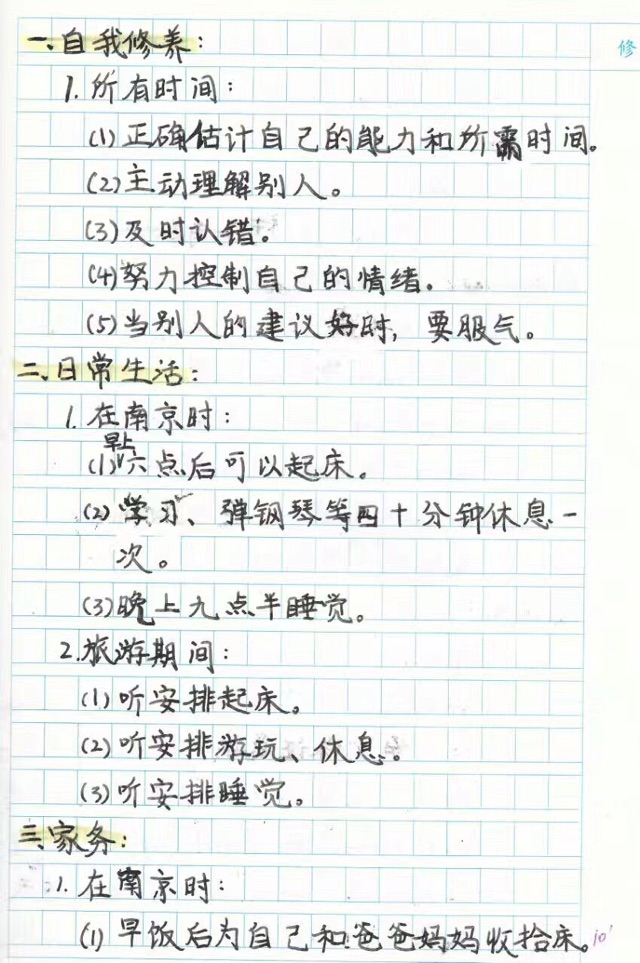 修
一、自我修养：
1. 所有时间：
(1) 正确估计自己的能力和所需时间。
(2) 主动理解别人。
(3) 及时认错。
(4) 努力控制自己的情绪。
(5) 当别人的建议好时，要服气。
二、日常生活：
1. 在南京时：
(1) 早上六点后可以起床。
(2) 学习、弹钢琴等四十分钟休息一
次。
(3) 晚上九点半睡觉。
2. 旅游期间：
(1) 听安排起床。
(2) 听安排游玩、休息。
(3) 听安排睡觉。
三、家务：
1. 在南京时：
(1) 早饭后为自己和爸爸妈妈收拾床。10'